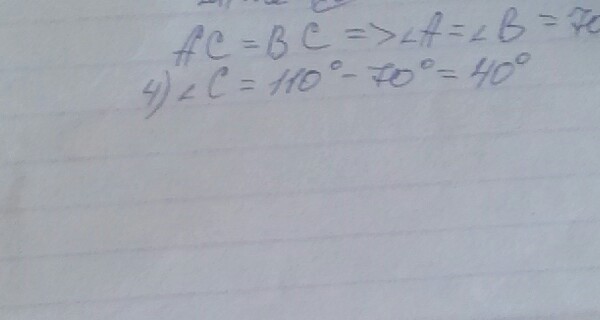 AC = BC => ∠A = ∠B = 70
4) ∠C = 110° - 70° = 40°